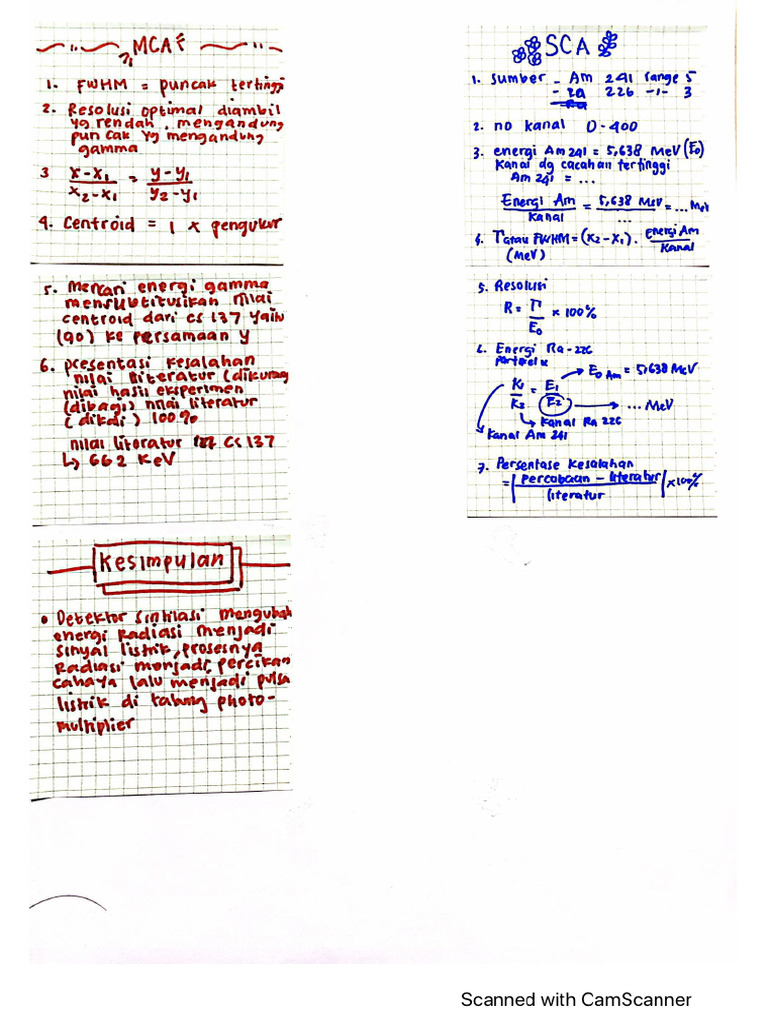 MCA
1. FWHM = puncak tertinggi
2. Resolusi optimal diambil
yg rendah, mengandung
puncak yg mengandung
gamma
3 x-x₁ / x₂-x₁ = y-y₁ / y₂-y₁
4. Centroid = 1 x pengukur
5. Mencari energi gamma
mensubtitusikan nilai
centroid dari cs 137 yaitu
(90) ke persamaan y
6. presentasi kesalahan
nilai literatur (dikurang
nilai hasil eksperimen
(dibagi) nilai literatur
(dikali) 100%
nilai literatur cs 137
↳ 662 KeV
Kesimpulan
• Detektor sintilasi mengubah
energi Radiasi menjadi
sinyal listrik, prosesnya
Radiasi menjadi percikan
cahaya lalu menjadi pulsa
listrik di tabung photo-
multiplier
SCA
1. sumber - Am 241 range 5
- Ra 226 -"- 3
2. no kanal 0-400
3. energi Am 241 = 5,638 MeV (E₀)
Kanal dg cacahan tertinggi
Am 241 = ...
Energi Am / Kanal = 5,638 MeV / ... = ... MeV
4. Γ atau FWHM = (x₂-x₁) . Energi Am / Kanal
(MeV)
5. Resolusi
R = Γ / E₀ x 100%
6. Energi Ra-226
K₁ / K₂ = E₁ / E₂ → E₀ Am = 5,638 MeV
→ ... MeV
↳ Kanal Ra 226
Kanal Am 241
7. Persentase kesalahan
= |percobaan - literatur / literatur| x 100%
Scanned with CamScanner